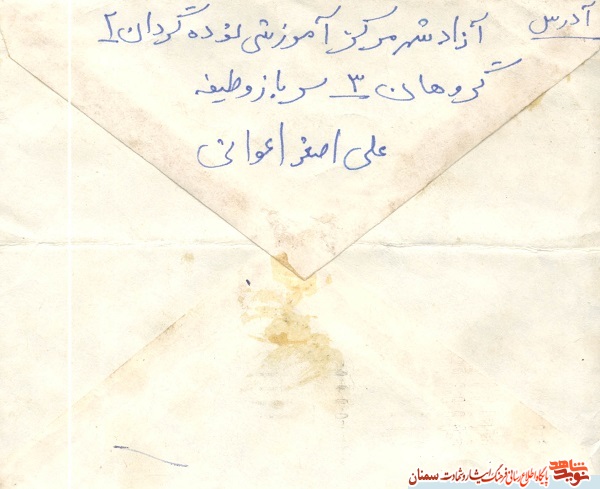 آدرس
آزادشهر مرکز آموزشی نوده گردان ۲
گروهان ۳ سرباز وظیفه
علی اصغر اعوانی
نوید شاهد پایگاه اطلاع رسانی فرهنگ ایثار و شهادت سمنان